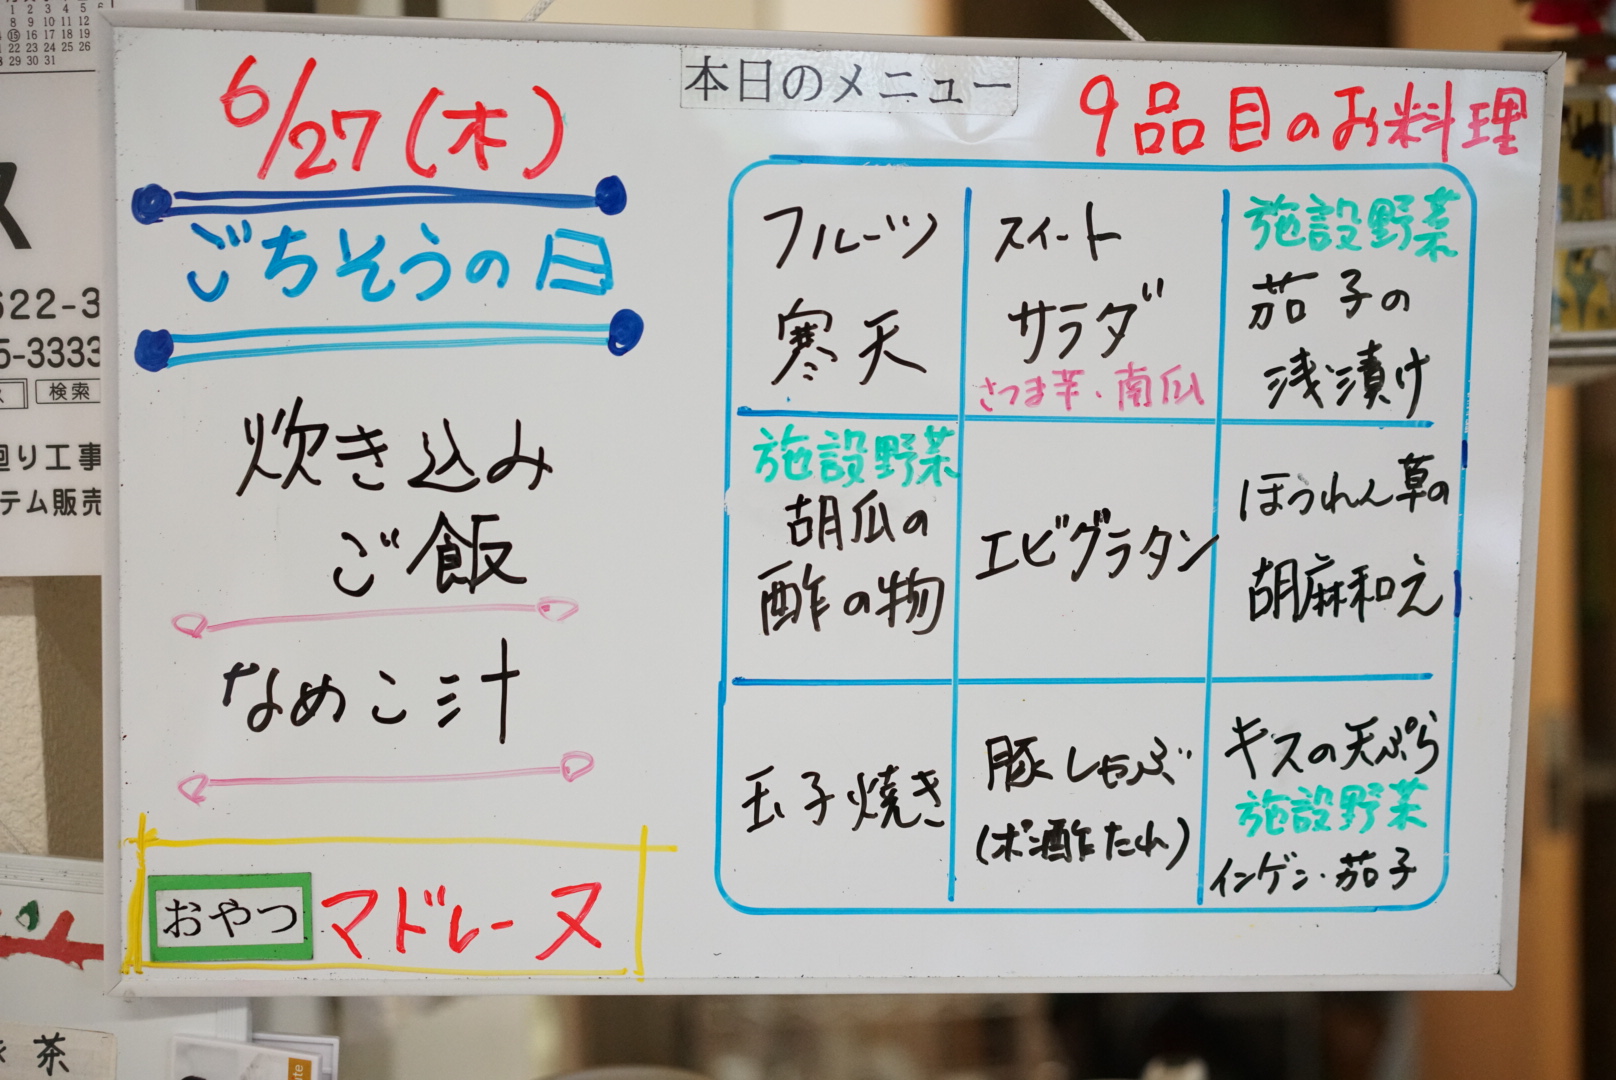 本日のメニュー
6/27(木)
ごちそうの日
炊き込み
ご飯
なめこ汁
おやつ
マドレーヌ
9品目のお料理
フルーツ
寒天
スイート
サラダ
さつま芋・南瓜
施設野菜
茄子の
浅漬け
施設野菜
胡瓜の
酢の物
エビグラタン
ほうれん草の
胡麻和え
玉子焼き
豚しゃぶ
(ポン酢たれ)
キスの天ぷら
施設野菜
インゲン・茄子
622-3
5-3333
検索
廻り工事
テム販売
茶
1 2 3 4 5 6
8 9 10 11 12
15 16 17 18 19
22 23 24 25 26
29 30 31